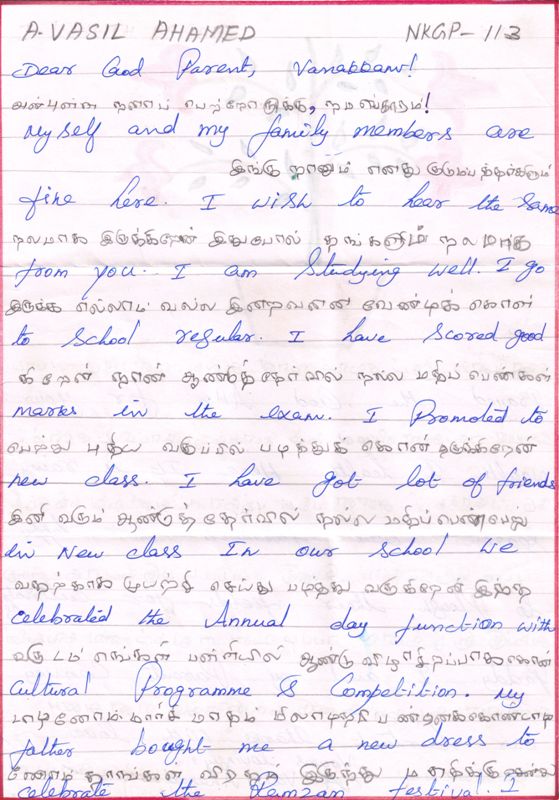 A. VASIL AHAMED NKGP - 113
Dear God Parent, Vanakkam!
அன்புள்ள ஞானப் பெற்றோருக்கு, நமஸ்காரம்!
Myself and my family members are
இங்கு நானும் எனது குடும்பத்தார்களும்
fine here. I wish to hear the same
நலமாக இருக்கிறேன் இதுபோல் தங்களும் நலமாக
from you. I am Studying well. I go
இருக்க எல்லாம் வல்ல இறைவனை வேண்டிக் கொள்
to School regular. I have scored good
கிறேன் நான் ஆண்டுத்தேர்வில் நல்ல மதிப்பெண்கள்
marks in the exam. I Promoted to
பெற்று புதிய வகுப்பில் படித்துக் கொண்டிருக்கிறேன்
new class. I have got lot of friends
இனி வரும் ஆண்டுத் தேர்வில் நல்ல மதிப்பெண் பெறு
in New class In our school We
வதற்காக முயற்சி செய்து படித்து வருகிறேன் இந்த
celebrated the Annual day function with
வருடம் எங்கள் பள்ளியில் ஆண்டு விழா சிறப்பாக
Cultural Programme & Competition. My
மார்ச் மாதம் மிலாடிநபி
father bought me a new dress to
நாங்கள் விரதம் இருந்து
celebrate the Ramzan festival. I